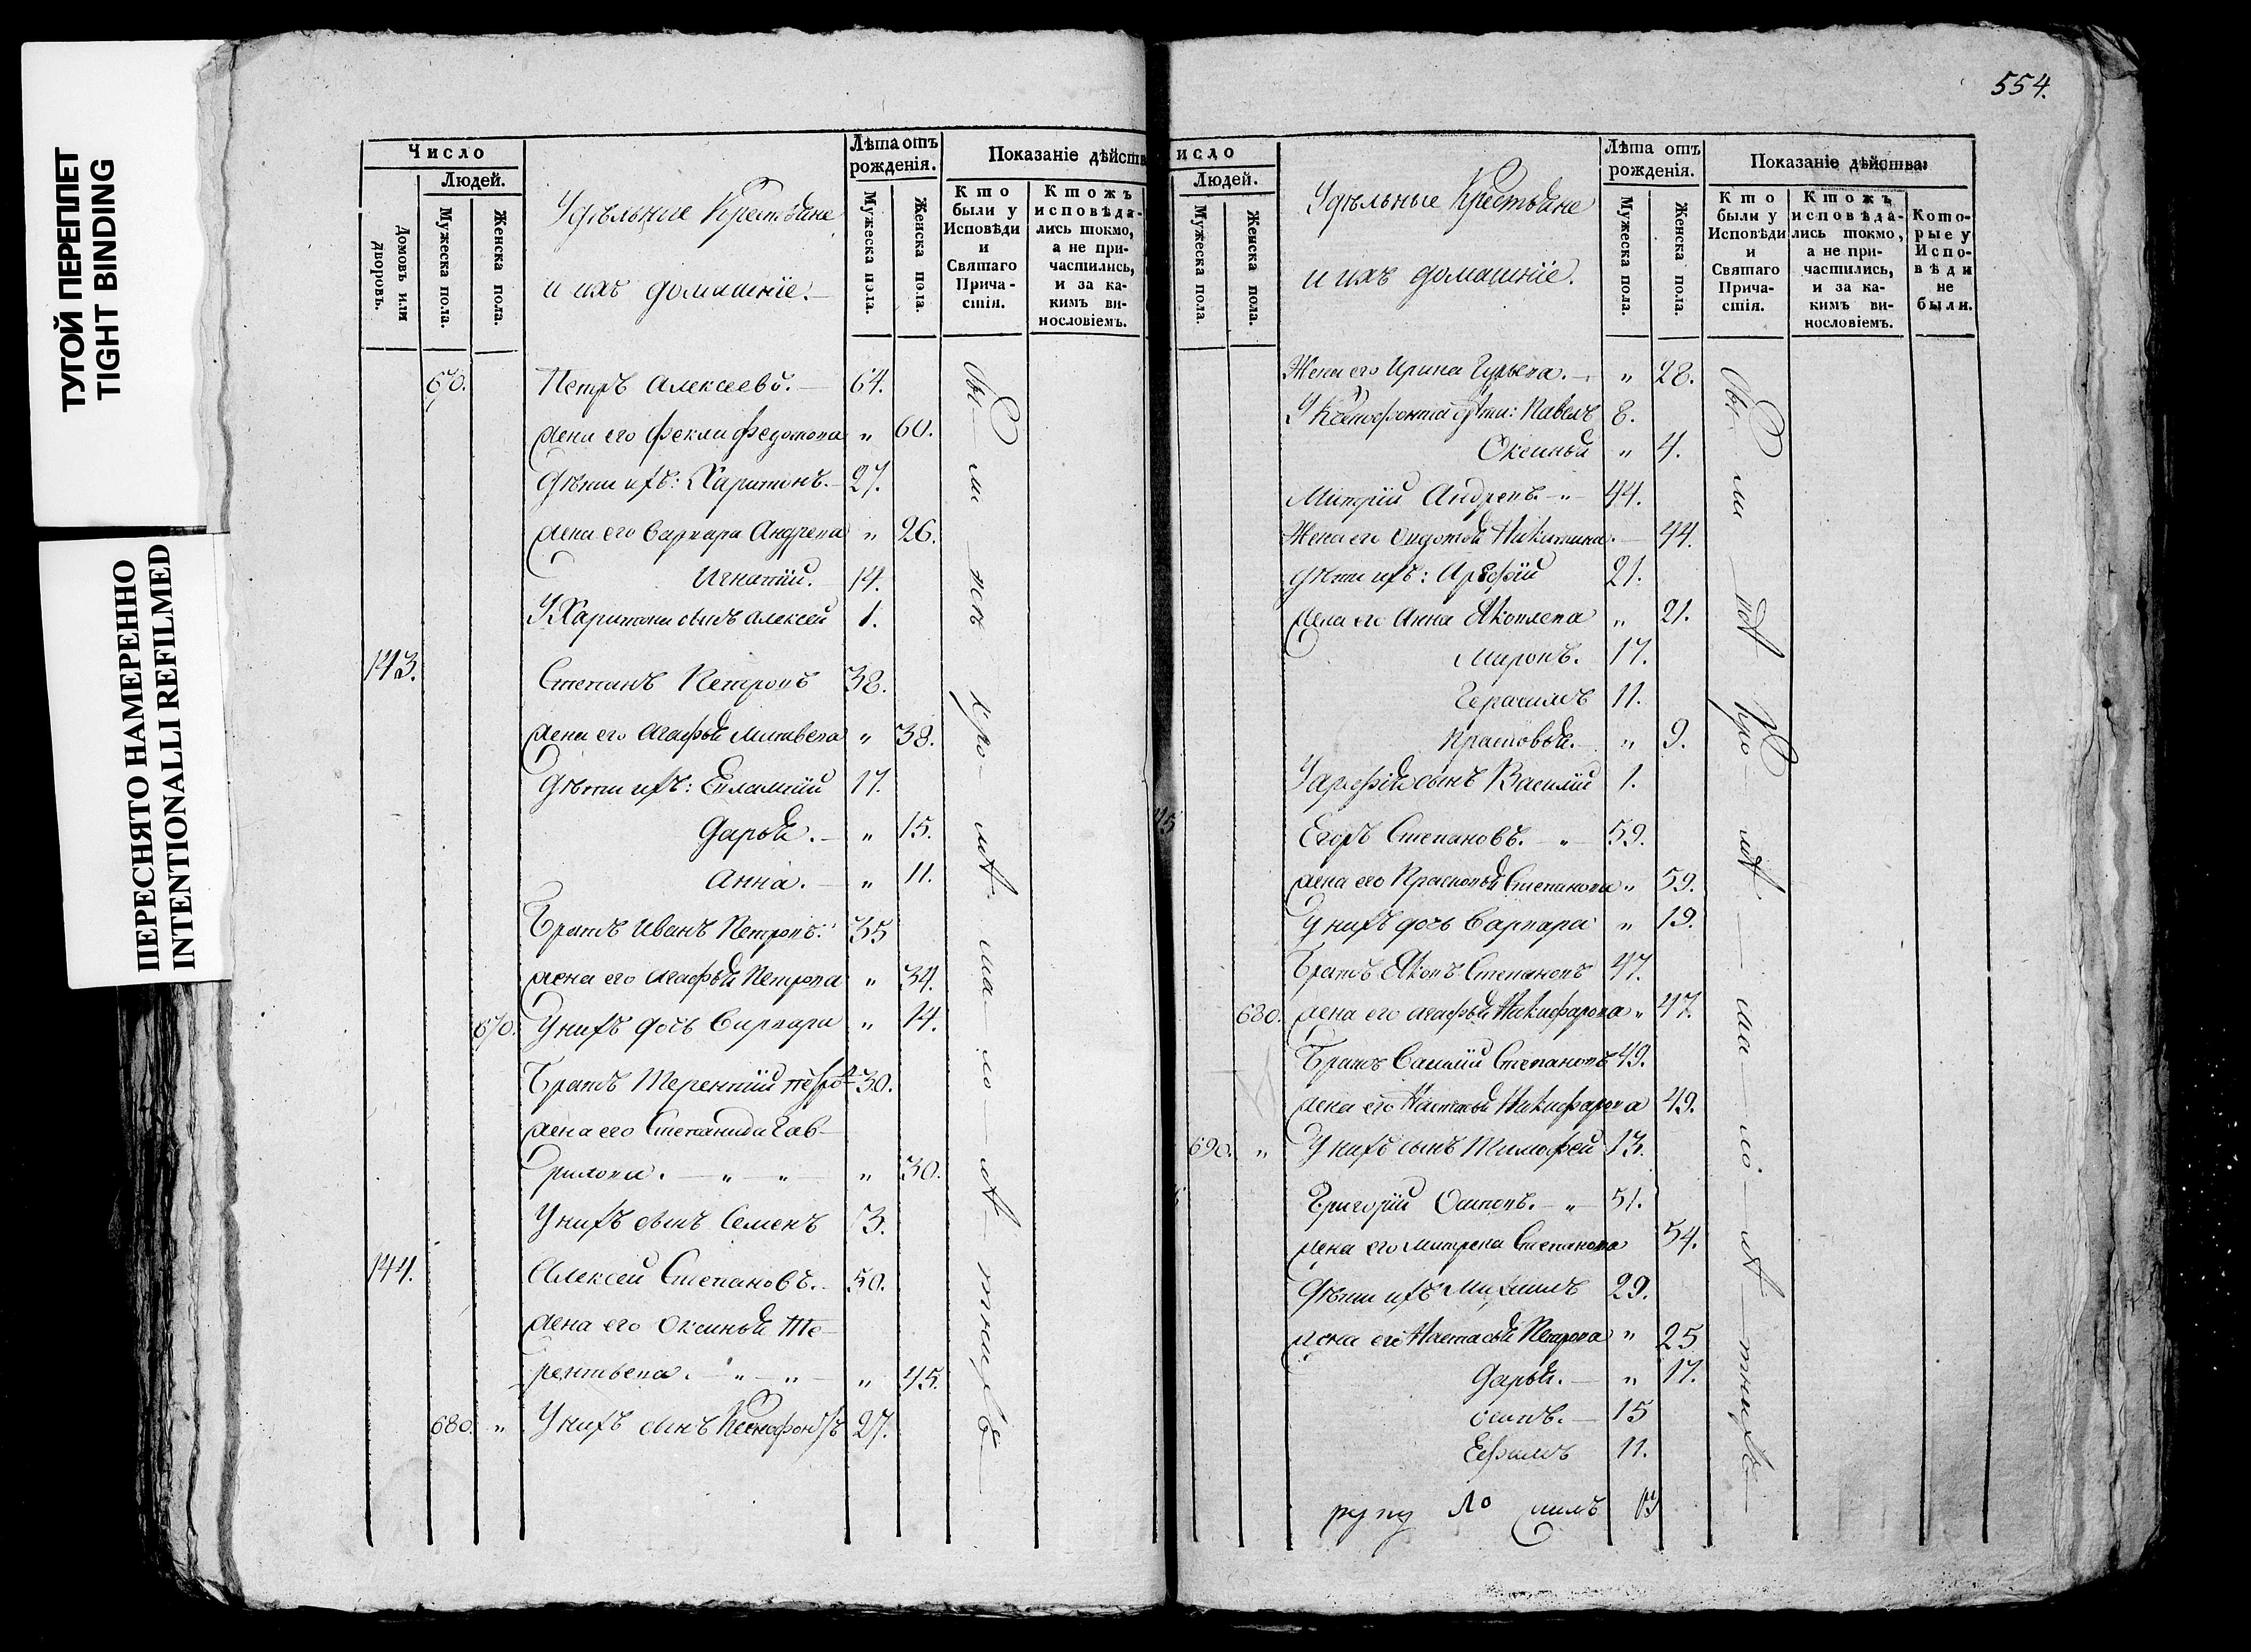 ТУГОЙ ПЕРЕПЛЕТ
TIGHT BINDING
ПЕРЕСНЯТО НАМЕРЕННО
INTENTIONALLI REFILMED
Число
Людей.
Домовъ или дворовъ.
Мужеска пола.
Женска пола.
Удѣльные Крестьяне
и ихъ домашніе.
Лѣта отъ рожденія.
Мужеска пола.
Женска пола.
Показаніе дѣйств
Кто были у Исповѣди и Святаго Прича-стія.
Ктожъ исповѣда-лись токмо, а не при-частились, и за ка-кимъ ви-нословіемъ.
670. Петръ Алексеевъ. 64.
жена его Фекла Федотова „ 60.
Дѣти ихъ: Харитонъ. 27.
жена его Варвара Андреева „ 26.
Игнатій. 14.
У Харитона сынъ Алексей 1.
143. Степанъ Петровъ 38.
жена его Агафья „ 38.
Дѣти ихъ: Евлампій 17.
Дарья. „ 15.
Анна. „ 11.
Братъ Иванъ Петровъ. 35
жена его Агафья Петрова „ 34.
670. У нихъ дочь Варвара „ 14.
Братъ Терентій Петро 30.
жена его Степанида Гав-
рилова. „ „ „ 30.
У нихъ сынъ Семенъ 3.
144. Алексей Степановъ. 50.
жена его Оксинья Те-
рентьева. „ „ „ 45.
680. „ У нихъ сынъ Ксенофонтъ 27.
554.
исло
Людей.
Мужеска пола.
Женска пола.
Удѣльные Крестьяне
и ихъ домашніе.
Лѣта отъ рожденія.
Мужеска пола.
Женска пола.
Показаніе дѣйства:
Кто были у Исповѣди и Святаго Прича-стія.
Ктожъ исповѣда-лись токмо, а не при-частились, и за ка-кимъ ви-нословіемъ.
Кото-рые у Испо-вѣди не были.
Жена его Ирина Гурьева. „ 28.
У Ксенофонта дѣти: Павелъ 8.
Оксинья „ 4.
Митрій Андревъ. „ 44.
Жена его Овдотья Никитина. 44.
Дѣти ихъ: Арефій 21.
жена его Анна Яковлева „ 21.
Миронъ. 17.
Герасимъ 11.
Прасковья. „ 9.
У Арефія сынъ Василій 1.
Егоръ Степановъ. „ 59.
жена его Прасковья Степанова „ 59.
У нихъ дочь Варвара „ 19.
Братъ Яковъ Степановъ 47.
680. жена его Агафья Никифарова „ 47.
Братъ Степановъ 49.
жена его Настасья Никифарова 49.
690. „ У нихъ сынъ Тимофей 13.
Григорій Осиповъ. „ 51.
жена его Матрена Степанова 54.
Дѣти ихъ Михаилъ 29.
жена его Настасья Петрова „ 25
Дарья. „ 17.
осипъ. 15
Ефимъ 11.